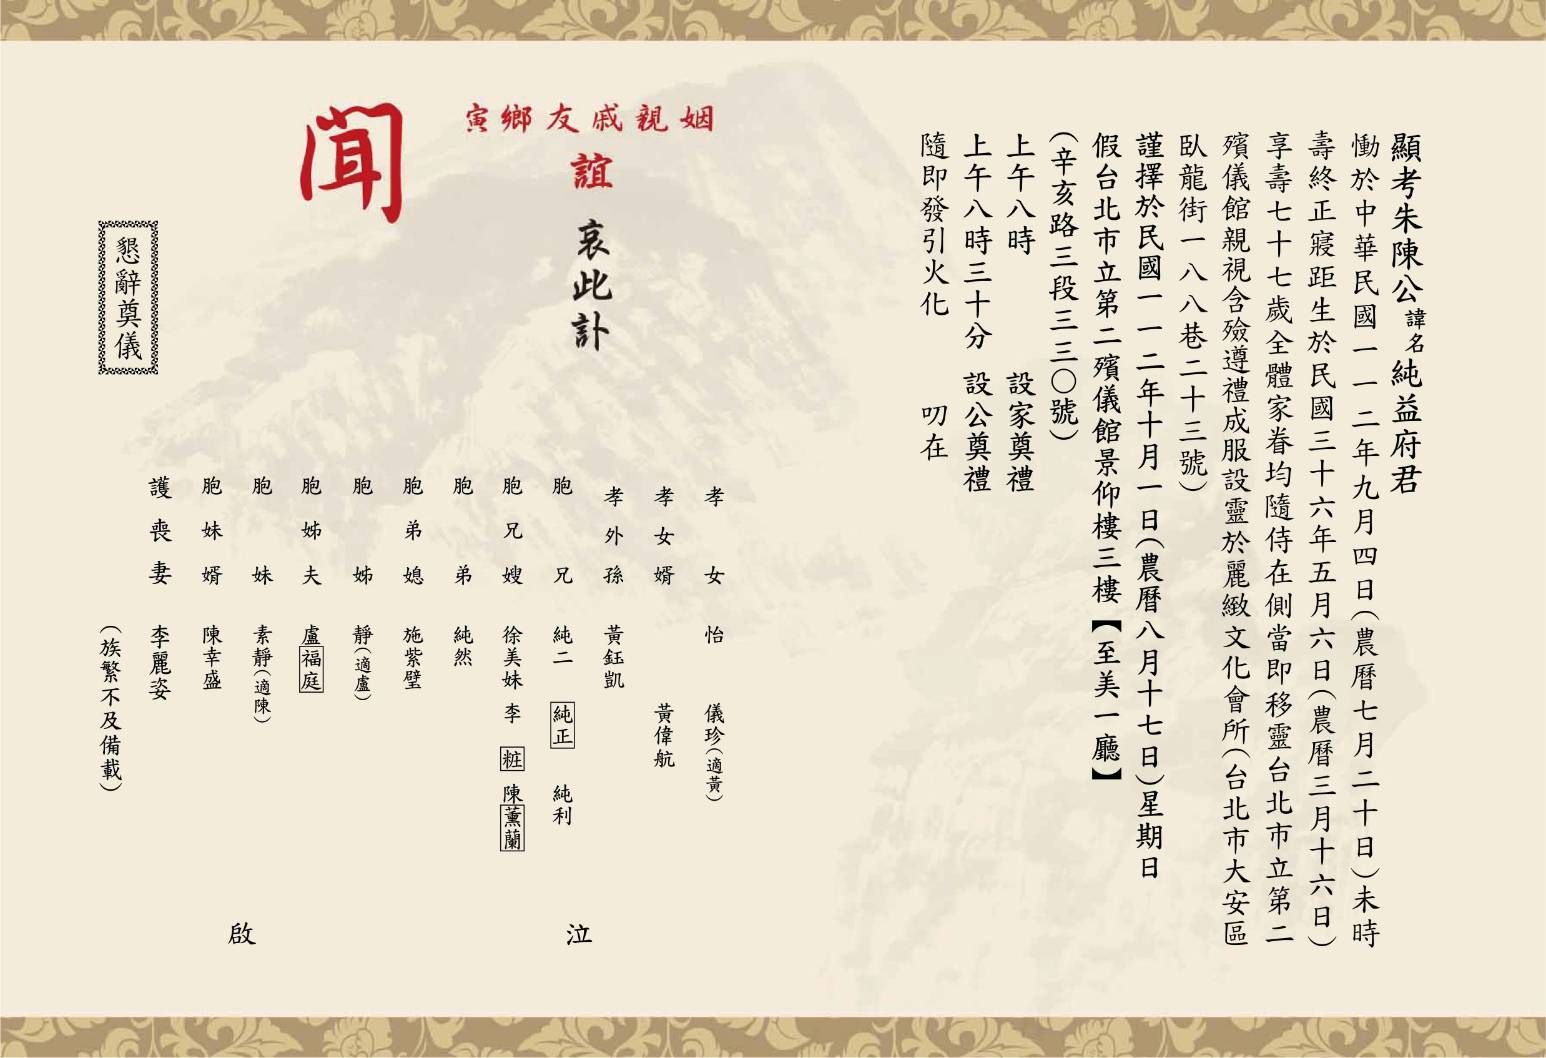 顯考朱陳公諱名純益府君
慟於中華民國一一二年九月四日(農曆七月二十日)未時
壽終正寢距生於民國三十六年五月六日(農曆三月十六日)
享壽七十七歲全體家眷均隨侍在側當即移靈台北市立第二
殯儀館親視含殮遵禮成服設靈於麗緻文化會所(台北市大安區
臥龍街一八八巷二十三號)
謹擇於民國一一二年十月一日(農曆八月十七日)星期日
假台北市立第二殯儀館景仰樓三樓【至美一廳】
(辛亥路三段三三〇號)
上午八時 設家奠禮
上午八時三十分 設公奠禮
隨即發引火化 叨在
姻親戚友鄉寅
誼 哀此訃
聞
孝女 怡 儀珍(適黃)
孝女婿 黃偉航
孝外孫 黃鈺凱
胞兄 純二 純正 純利
胞兄嫂 徐美妹 李粧 陳薰蘭
胞弟 純然
胞弟媳 施紫璧
胞姊 靜(適盧)
胞姊夫 盧福庭
胞妹 素靜(適陳)
胞妹婿 陳幸盛
護喪妻 李麗姿
(族繁不及備載)
泣啟
懇辭奠儀